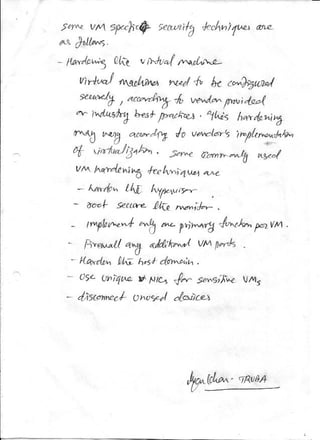 some VM specific security techniques are
as follows.
- Hardening the virtual machine
virtual machines need to be configured
securely, according to vendor provided
or industry best practices. This hardening
may vary according to vendor's implementation
of virtualization. Some commonly used
VM hardening techniques are
- harden the hypervisor
- root secure the monitor.
- implement only one primary function per VM.
- Firewall any additional VM ports.
- Harden the host domain.
- Use unique NICs for sensitive VMs
- disconnect unused devices